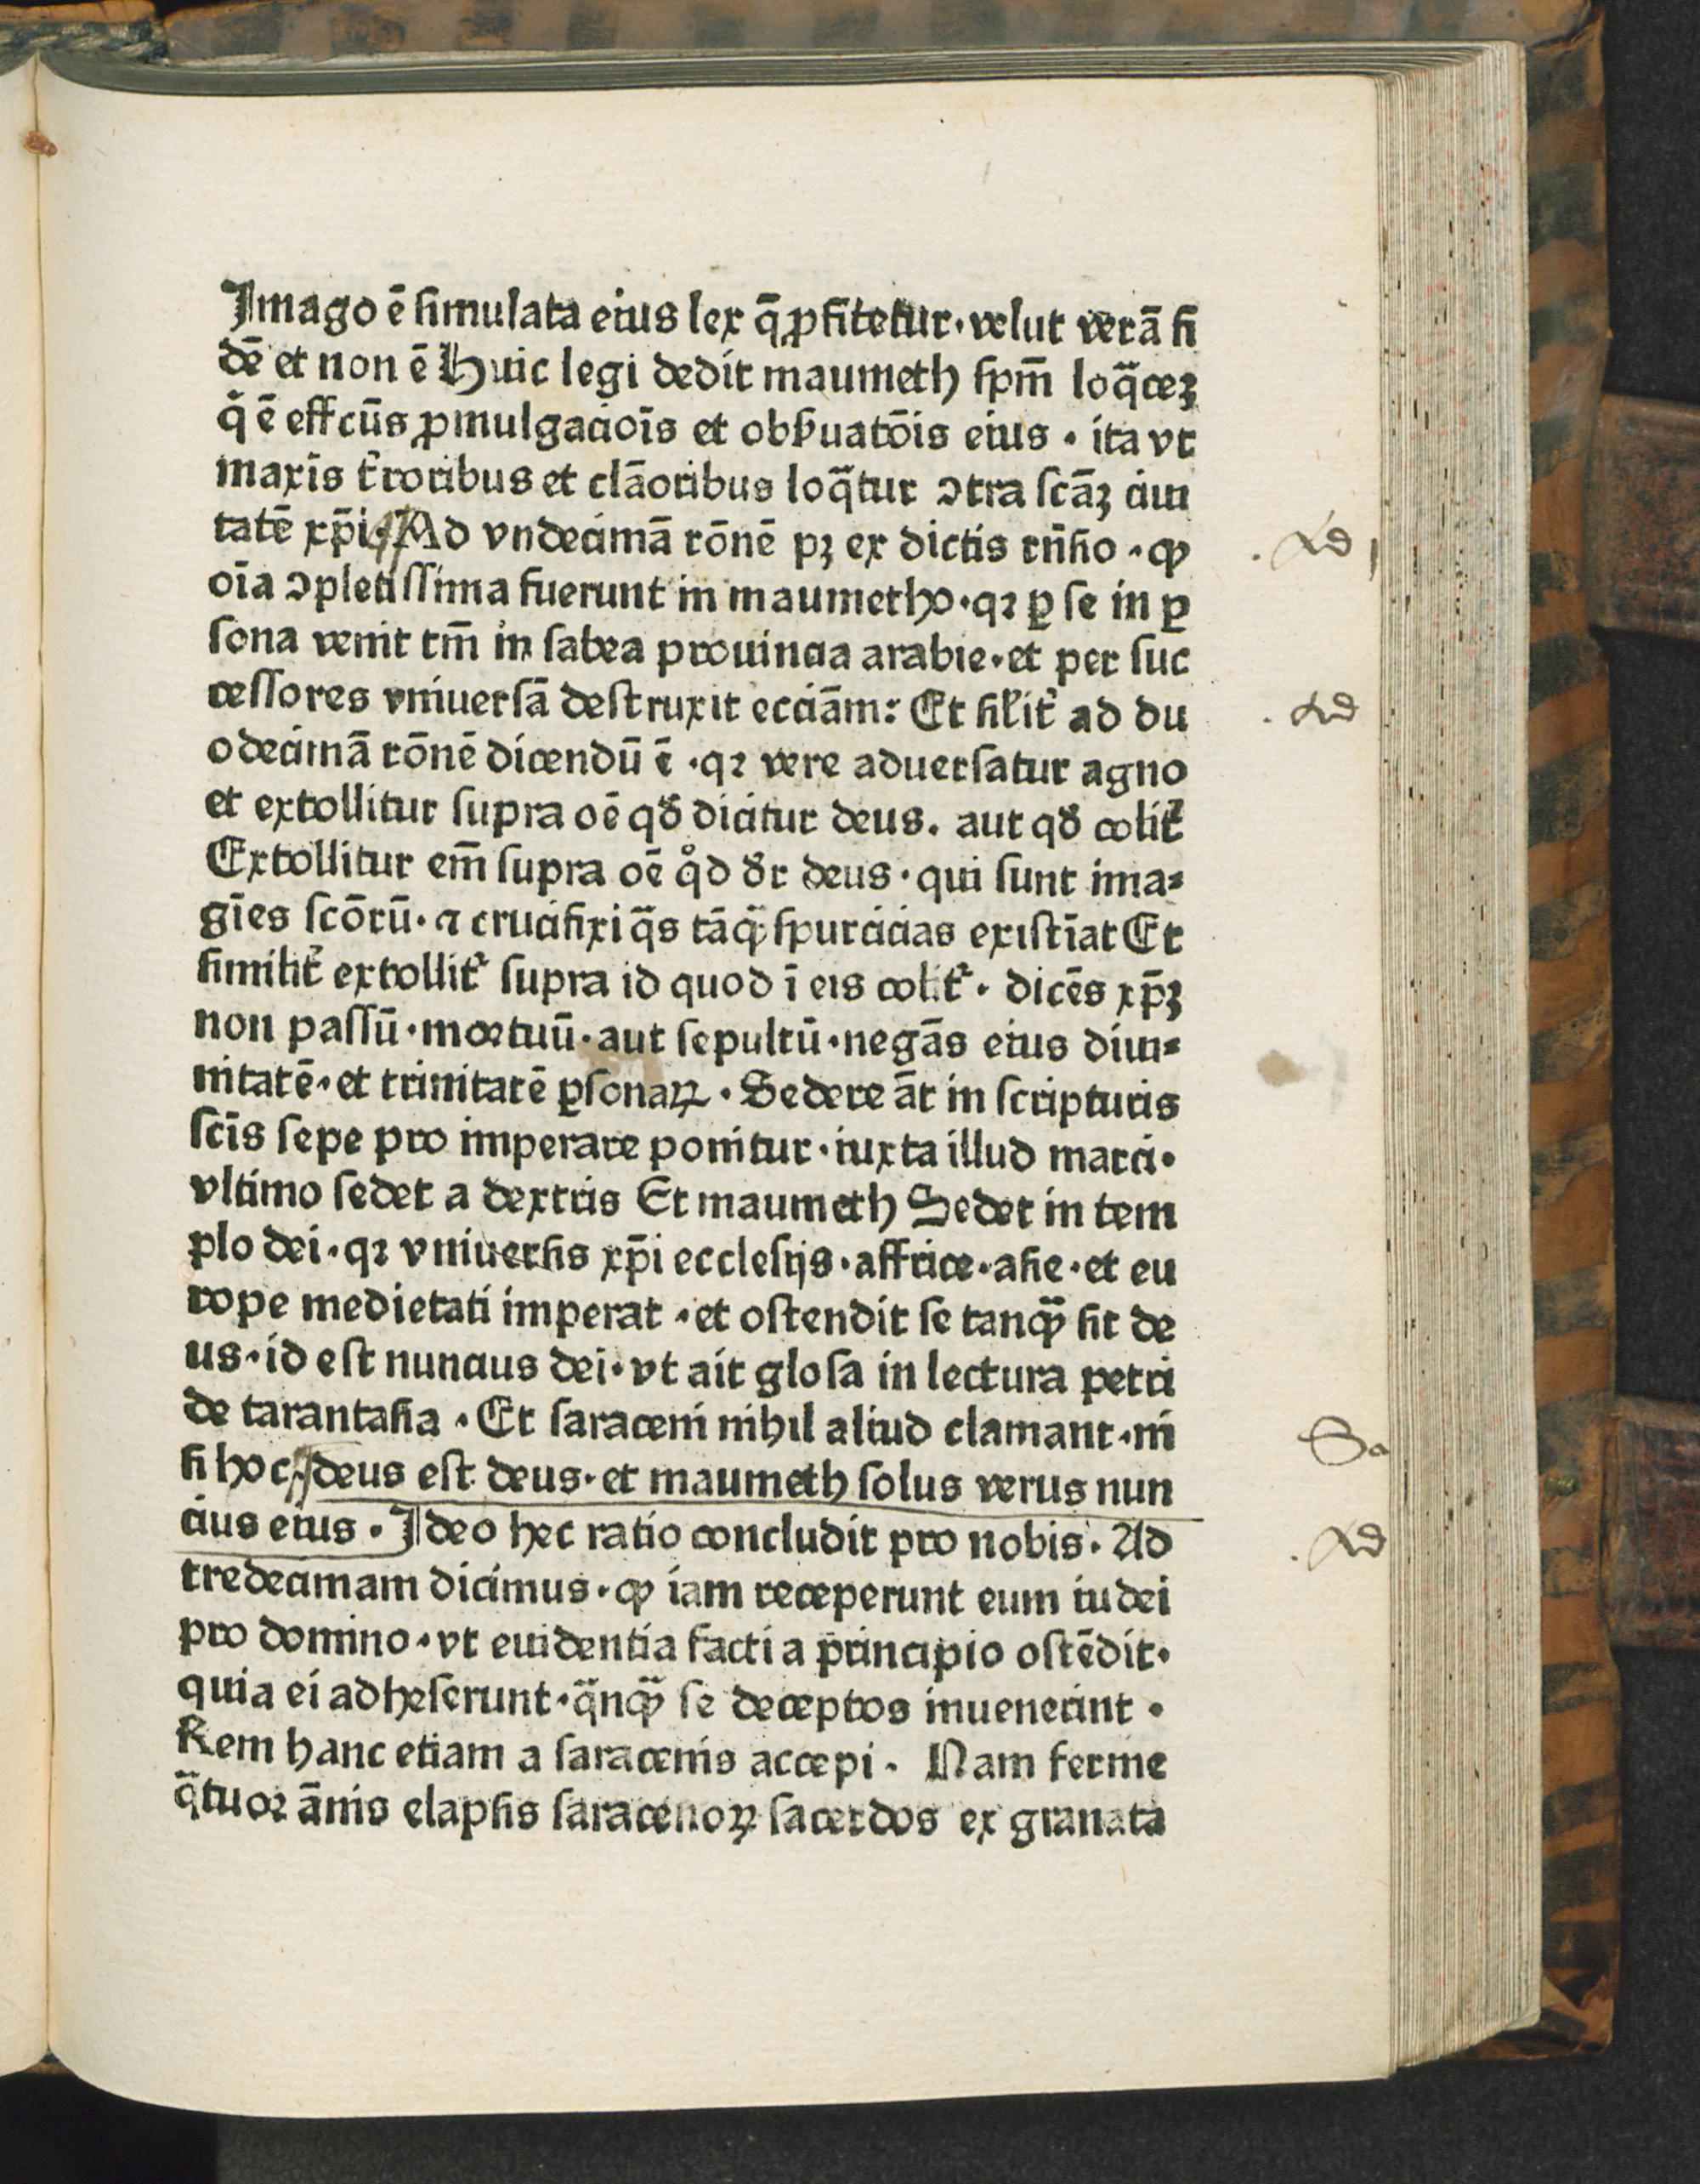 Imago ē ſimulata eius lex q̄ ꝓfitetur · velut verā fi
dē et non ē Huic legi dedit maumeth ſpm̄ loq̄cez
q̇ ē effcūs ꝓmulgaciōis et obẜuatōis eius · ita vt
maxīs t̓roribus et clāoribus loq̄tur ↄtra ſcāꝫ ciui
tatē xp̄i · Ad vndecimā rōnē pꝫ ex dictis rn̄ſio · ꝙ
oīa ↄpletiſſima fuerunt in maumetho · qꝛ ꝑ ſe in ꝑ
ſona venit tm̄ in ſabea prouincia arabie · et per ſuc
ceſſores vniuerſā deſtruxit eccīam: Et ſil̓it̓ ad du
odecimā rōnē dicendū ē · qꝛ vere aduerſatur agno
et extollitur ſupra oē qð dicitur deus. aut qð colit̓
Extollitur em̄ ſupra oē qͦd ðr deus · qui ſunt ima⸗
gīes ſcōrū · ⁊ crucifixi q̄s tāꝙ̄ ſpurcicias exiſtīat Et
ſimilit̓ extollit̓ ſupra id quod ī eis colit̓ · dicēs xp̄ꝫ
non paſſū · moꝛtuū · aut ſepultū · negās eius diui⸗
nitatē · et trinitatē ꝑſonaꝝ · Sedere āt in ſcripturis
ſcīs ſepe pro imperare ponitur · iuxta illud marci ·
vltimo ſedet a dextris Et maumeth Sedet in tem
plo dei · qꝛ vniuerſis xp̄i eccleſijs · affrice · aſie · et eu
rope medietati imperat · et oſtendit ſe tanꝙ̄ ſit de
us · id eſt nuncius dei · vt ait gloſa in lectura petri
de tarantaſia · Et ſaraceni nihil aliud clamant · ni
ſi hoc · deus eſt deus · et maumeth ſolus verus nun
cius eius · Ideo hec ratio concludit pro nobis · Ad
tredecimam dicimus · ꝙ iam receperunt eum iudei
pro domino · vt euidentia facti a principio oſtēdit ·
quia ei adheſerunt · q̄nꝙ̄ ſe deceptos inuenerint ·
Rem hanc etiam a ſaracenis accepi · Nam ferme
q̄tuoꝛ ānis elapſis ſaracenoꝝ ſacerdos ex granata
· Ad
· Ad
Sa
· Ad